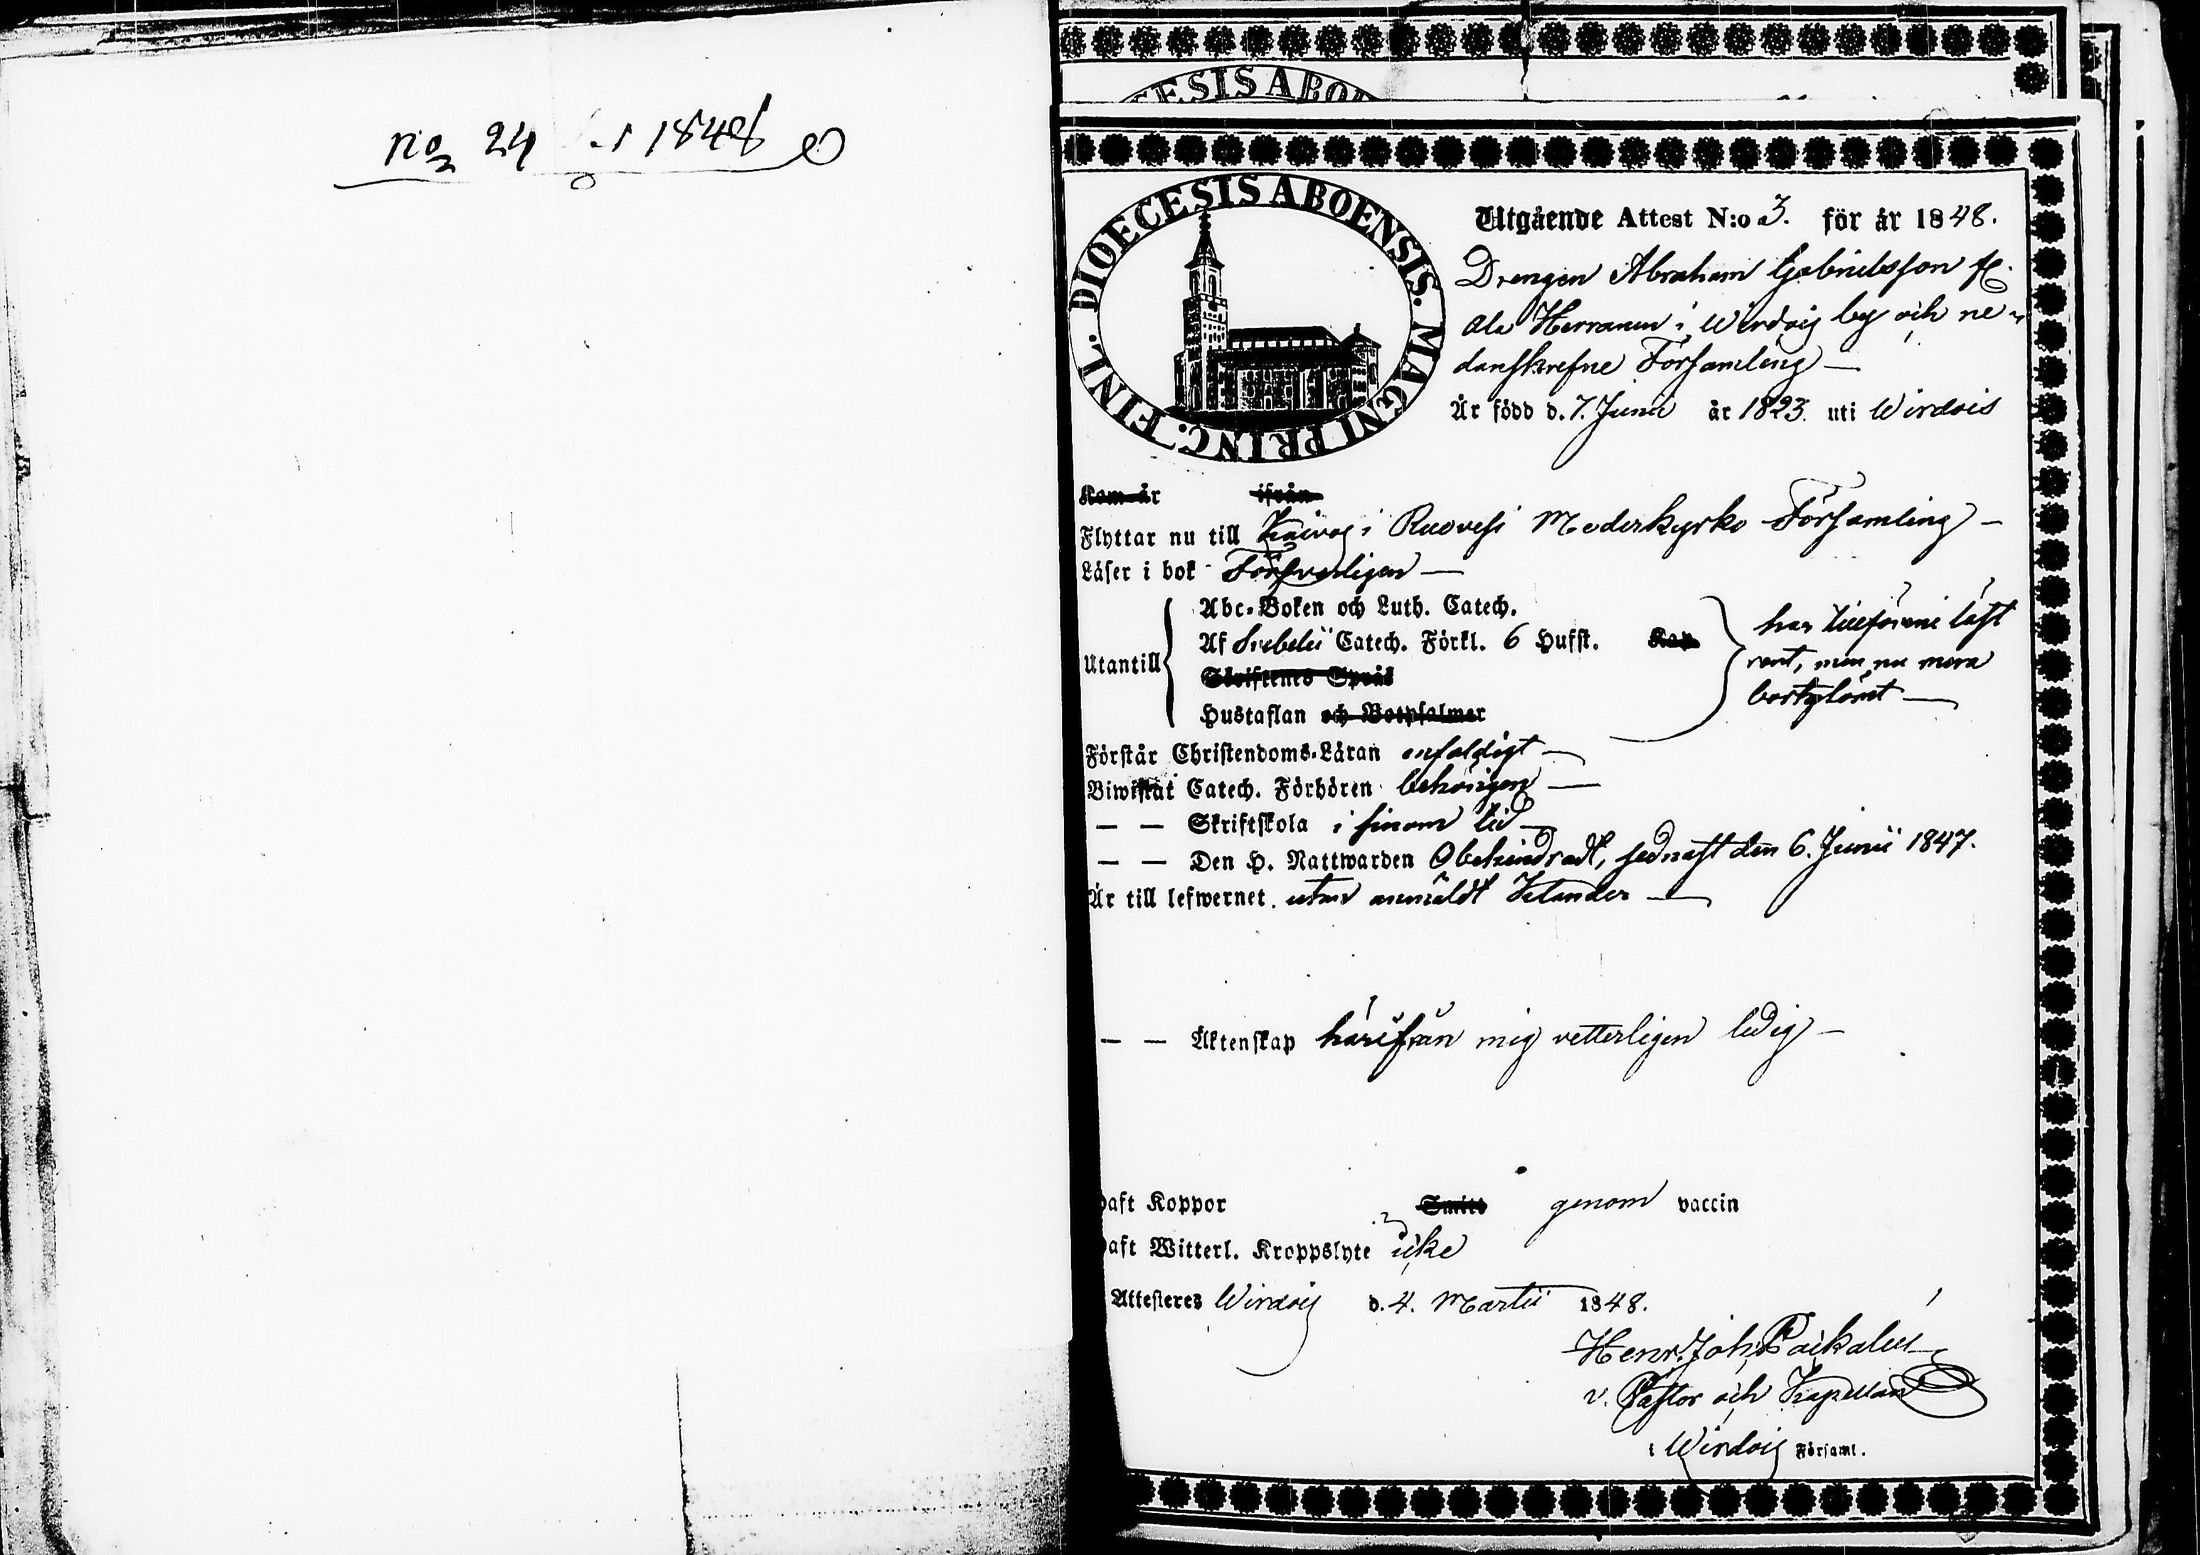 No 24 1848
CESIS ABOE
DIOECESIS ABOENSIS. MAGNI PRINC. FINL.
Utgående Attest N:o 3. för år 1848.
Drengen Abraham Gabrielsson fr.
Ala Herranen i Wirdois by och ne-
danskrefne Församling —
Är född d. 7. Junii år 1823. uti Wirdois
Kom år ifrån
Flyttar nu till i Ruovesi Moderkyrko Församling —
Läser i bok Försvarligen —
Abc-Boken och Luth. Catech.
Af Svebelii Catech. Förkl. 6 Hufst. Kap
Utantill
Skriftenes Språk
Hustaflan och Botpsalmer
har tilförene läst
rent, men nu mera
bortglömt —
Förstår Christendoms-Läran enfaldigt —
Biwistat Catech. Förhören behörigen —
— — Skriftskola i sinom tid —
— — Den H. Nattwarden Obehindradt, sednast den 6. Junii 1847.
Är till lefwernet. utan anmäldt klander —
— — Äktenskap härifrån mig vetterligen ledig —
Haft Koppor Smitt genom vaccin
Haft Witterl. Kroppslyte icke
Attesteres Wirdois d. 4. Martii 1848.
Henr. Joh. Paikalén
v. Pastor och Kapellan
i Wirdois Församl.